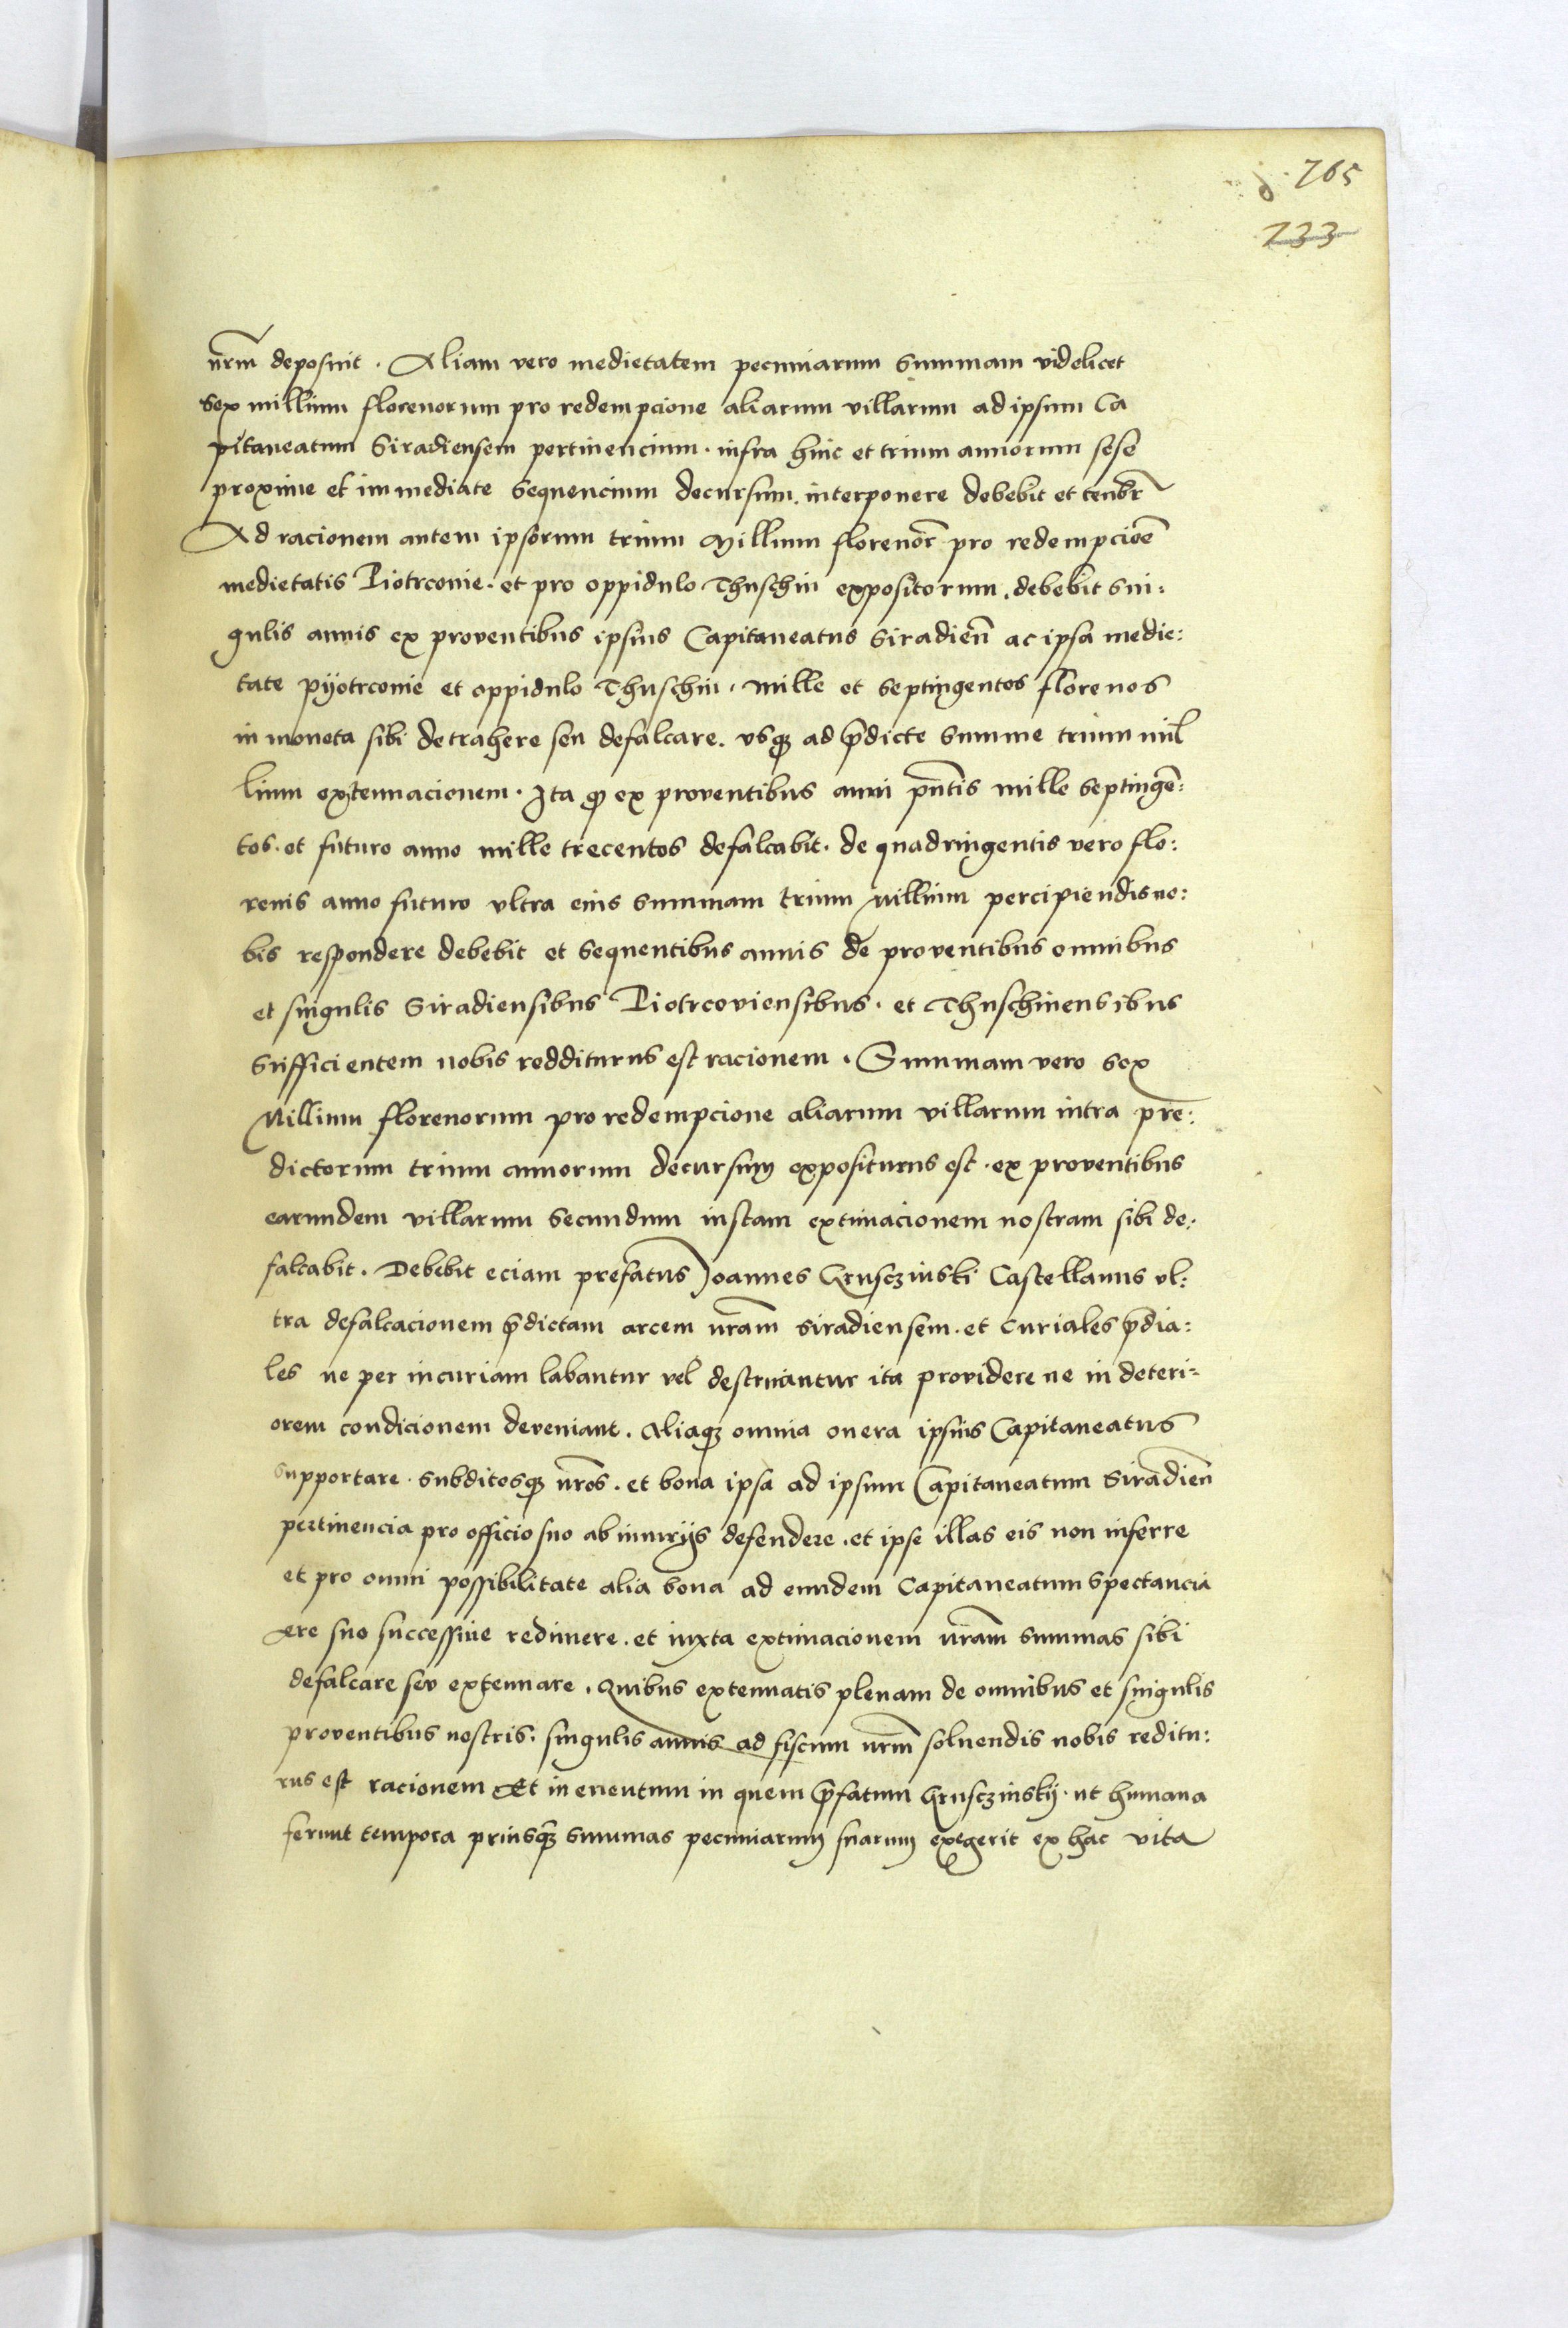 765
233
nr̃m deposuit · Aliam vero medietatem pecuniarum summam videlicet
sex millium florenorum pro redempcione aliarum villarum ad ipsum Ca
pitaneatum Siradiensem pertinencium · infra hinc et trium annorum sese
proxime et immediate sequencium decursum, interponere debebit et tenebr̃
Ad racionem autem ipsorum trium Millium florenor̃ pro redempcioẽ
medietatis Piotrconie · et pro oppidulo Thuschin expositorum, debebit sin:
gulis annis ex proventibus ipsius Capitaneatus Siradieñ ac ipsa medie:
tate Pyotrconie et oppidulo Thuschin · mille et septingentos florenos
in moneta sibi detrahere seu defalcare. usqꝫ ad p̃dicte summe trium mil
lium extenuacionem · Ita qꝫ ex proventibus anni pñtis mille septingẽ:
tos · et futuro anno mille trecentos defalcabit · de quadringentis vero flo:
renis anno futuro ultra eius summam trium Millium percipiendis no:
bis respondere debebit et sequentibus annis de proventibus omnibus
et singulis Siradiensibus Piotrcoviensibus · et Thuschinensibus
sufficientem nobis redditurus est racionem · Summam vero sex
Millium florenorum pro redempcione aliarum villarum intra pre:
dictorum trium annorum decursum expositurus est · ex proventibus
earundem villarum secundum iustam extimacionem nostram sibi de:
falcabit. Debebit eciam prefatus Joannes Grusczinski Castellanus ul:
tra defalcacionem p̃dictam arcem nr̃am siradiensem · et curiales p̃dia:
les ne per incuriam labantur vel destruantur ita providere ne in deteri=
orem condicionem deveniant. Aliaqꝫ omnia onera ipsius Capitaneatus
supportare · subditosqꝫ nr̃os · et bona ipsa ad ipsum Capitaneatum Siradieñ
pertinencia pro officio suo ab iniuriis defendere · et ipse illas eis non inferre
et pro omni possibilitate alia bona ad eundem Capitaneatum spectancia
ere suo successive redimere · et iuxta extimacionem nr̃am summas sibi
defalcare seu extenuare · Quibus extenuatis plenam de omnibus et singulis
proventibus nostris · singulis annis ad fiscum nr̃m solvendis nobis reditu:
rus est racionem Et in eventum in quem p̃fatum Grusczinskij · ut humana
ferunt tempora priusqꝫ summas pecuniarum suarum exegerit ex hac vita